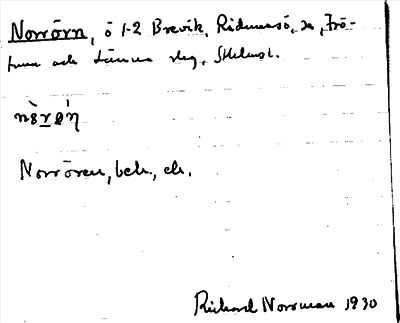 Norrörn, ö 1-2 Brevik, Rådmansö, sn, Frö-
tuna och Länna slg, Sthlms l.
Norrören, beh., ek.
Richard Norrman 1930